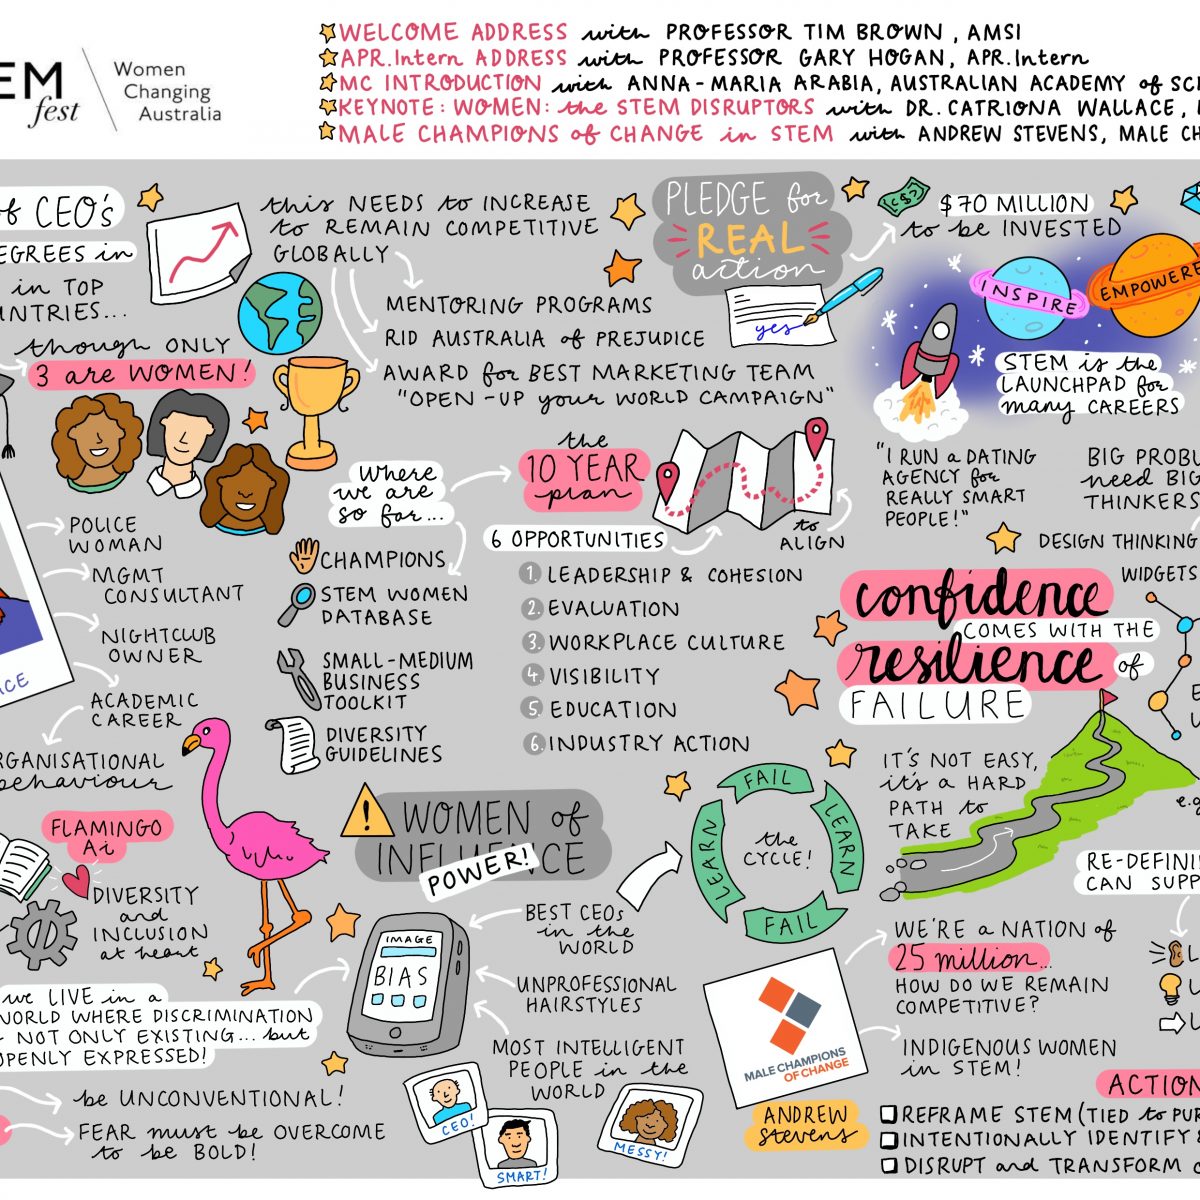 EM
fest
Women
Changing
Australia
WELCOME ADDRESS with PROFESSOR TIM BROWN, AMSI
APR.Intern ADDRESS with PROFESSOR GARY HOGAN, APR.Intern
MC INTRODUCTION with ANNA-MARIA ARABIA, AUSTRALIAN ACADEMY of SC
KEYNOTE: WOMEN: the STEM DISRUPTORS with DR. CATRIONA WALLACE,
MALE CHAMPIONS of CHANGE in STEM with ANDREW STEVENS, MALE CH
of CEO's
EGREES in
in TOP
NTRIES...
though ONLY
3 are WOMEN!
this NEEDS to INCREASE
to REMAIN COMPETITIVE
GLOBALLY
MENTORING PROGRAMS
RID AUSTRALIA of PREJUDICE
AWARD for BEST MARKETING TEAM
"OPEN-UP your WORLD CAMPAIGN"
PLEDGE for
REAL
action
yes
$70 MILLION
to be INVESTED
INSPIRE
EMPOWERE
STEM is the
LAUNCHPAD for
many CAREERS
"I RUN a DATING
AGENCY for
REALLY SMART
PEOPLE!"
BIG PROBL
need BIG
THINKERS
DESIGN THINKING
WIDGETS
Where
we are
so far...
CHAMPIONS
STEM WOMEN
DATABASE
SMALL-MEDIUM
BUSINESS
TOOLKIT
DIVERSITY
GUIDELINES
the
10 YEAR
plan
to
ALIGN
6 OPPORTUNITIES
1. LEADERSHIP & COHESION
2. EVALUATION
3. WORKPLACE CULTURE
4. VISIBILITY
5. EDUCATION
6. INDUSTRY ACTION
POLICE
WOMAN
MGMT
CONSULTANT
NIGHTCLUB
OWNER
ACADEMIC
CAREER
RGANISATIONAL
behaviour
ACE
confidence
COMES WITH THE
resilience of
FAILURE
IT'S NOT EASY,
it's a HARD
PATH to
TAKE
e.g
RE-DEFININ
CAN SUPP
FLAMINGO
Ai
DIVERSITY
and
INCLUSION
at heart
we LIVE in a
WORLD WHERE DISCRIMINATION
NOT ONLY EXISTING... but
OPENLY EXPRESSED!
be UNCONVENTIONAL!
FEAR must be OVERCOME
to be BOLD!
WOMEN of
INFLUENCE
POWER!
IMAGE
BIAS
BEST CEOs
in the
WORLD
UNPROFESSIONAL
HAIRSTYLES
MOST INTELLIGENT
PEOPLE in the
WORLD
CEO!
SMART!
MESSY!
FAIL
LEARN
FAIL
LEARN
the
CYCLE!
MALE CHAMPIONS
OF CHANGE
ANDREW
Stevens
WE'RE a NATION of
25 million...
HOW DO WE REMAIN
COMPETITIVE?
INDIGENOUS WOMEN
in STEM!
ACTION
REFRAME STEM (TIED to PUR
INTENTIONALLY IDENTIFY &
DISRUPT and TRANSFORM